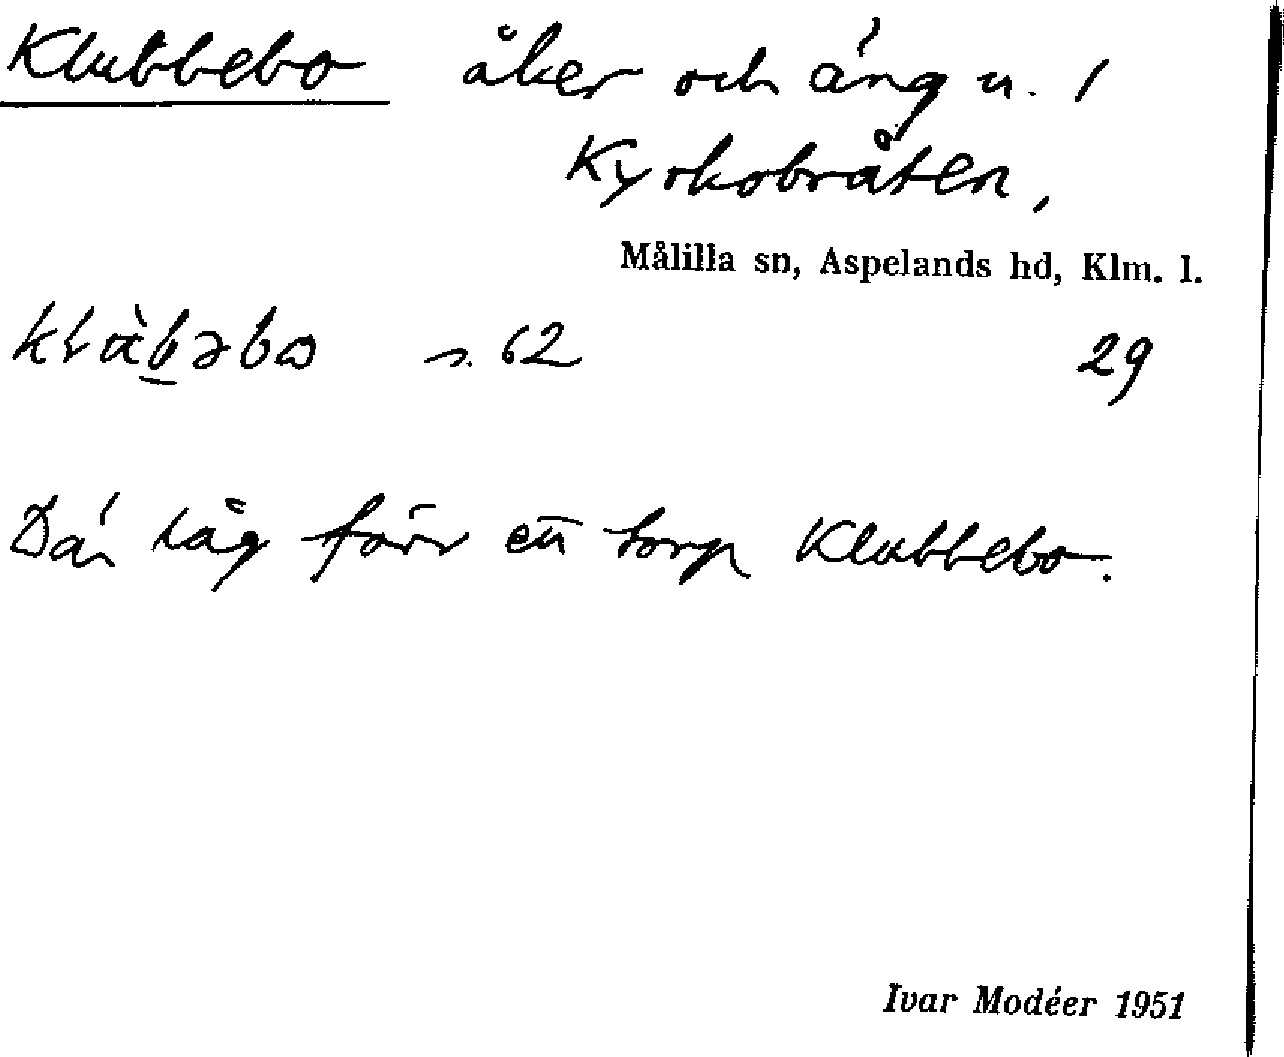 Klubbebo åker och äng u. 1
Kyrkobråten,
Målilla sn, Aspelands hd, Klm. l.
s. 62 29
Där låg förr en torp Klubbebo.
Ivar Modéer 1951